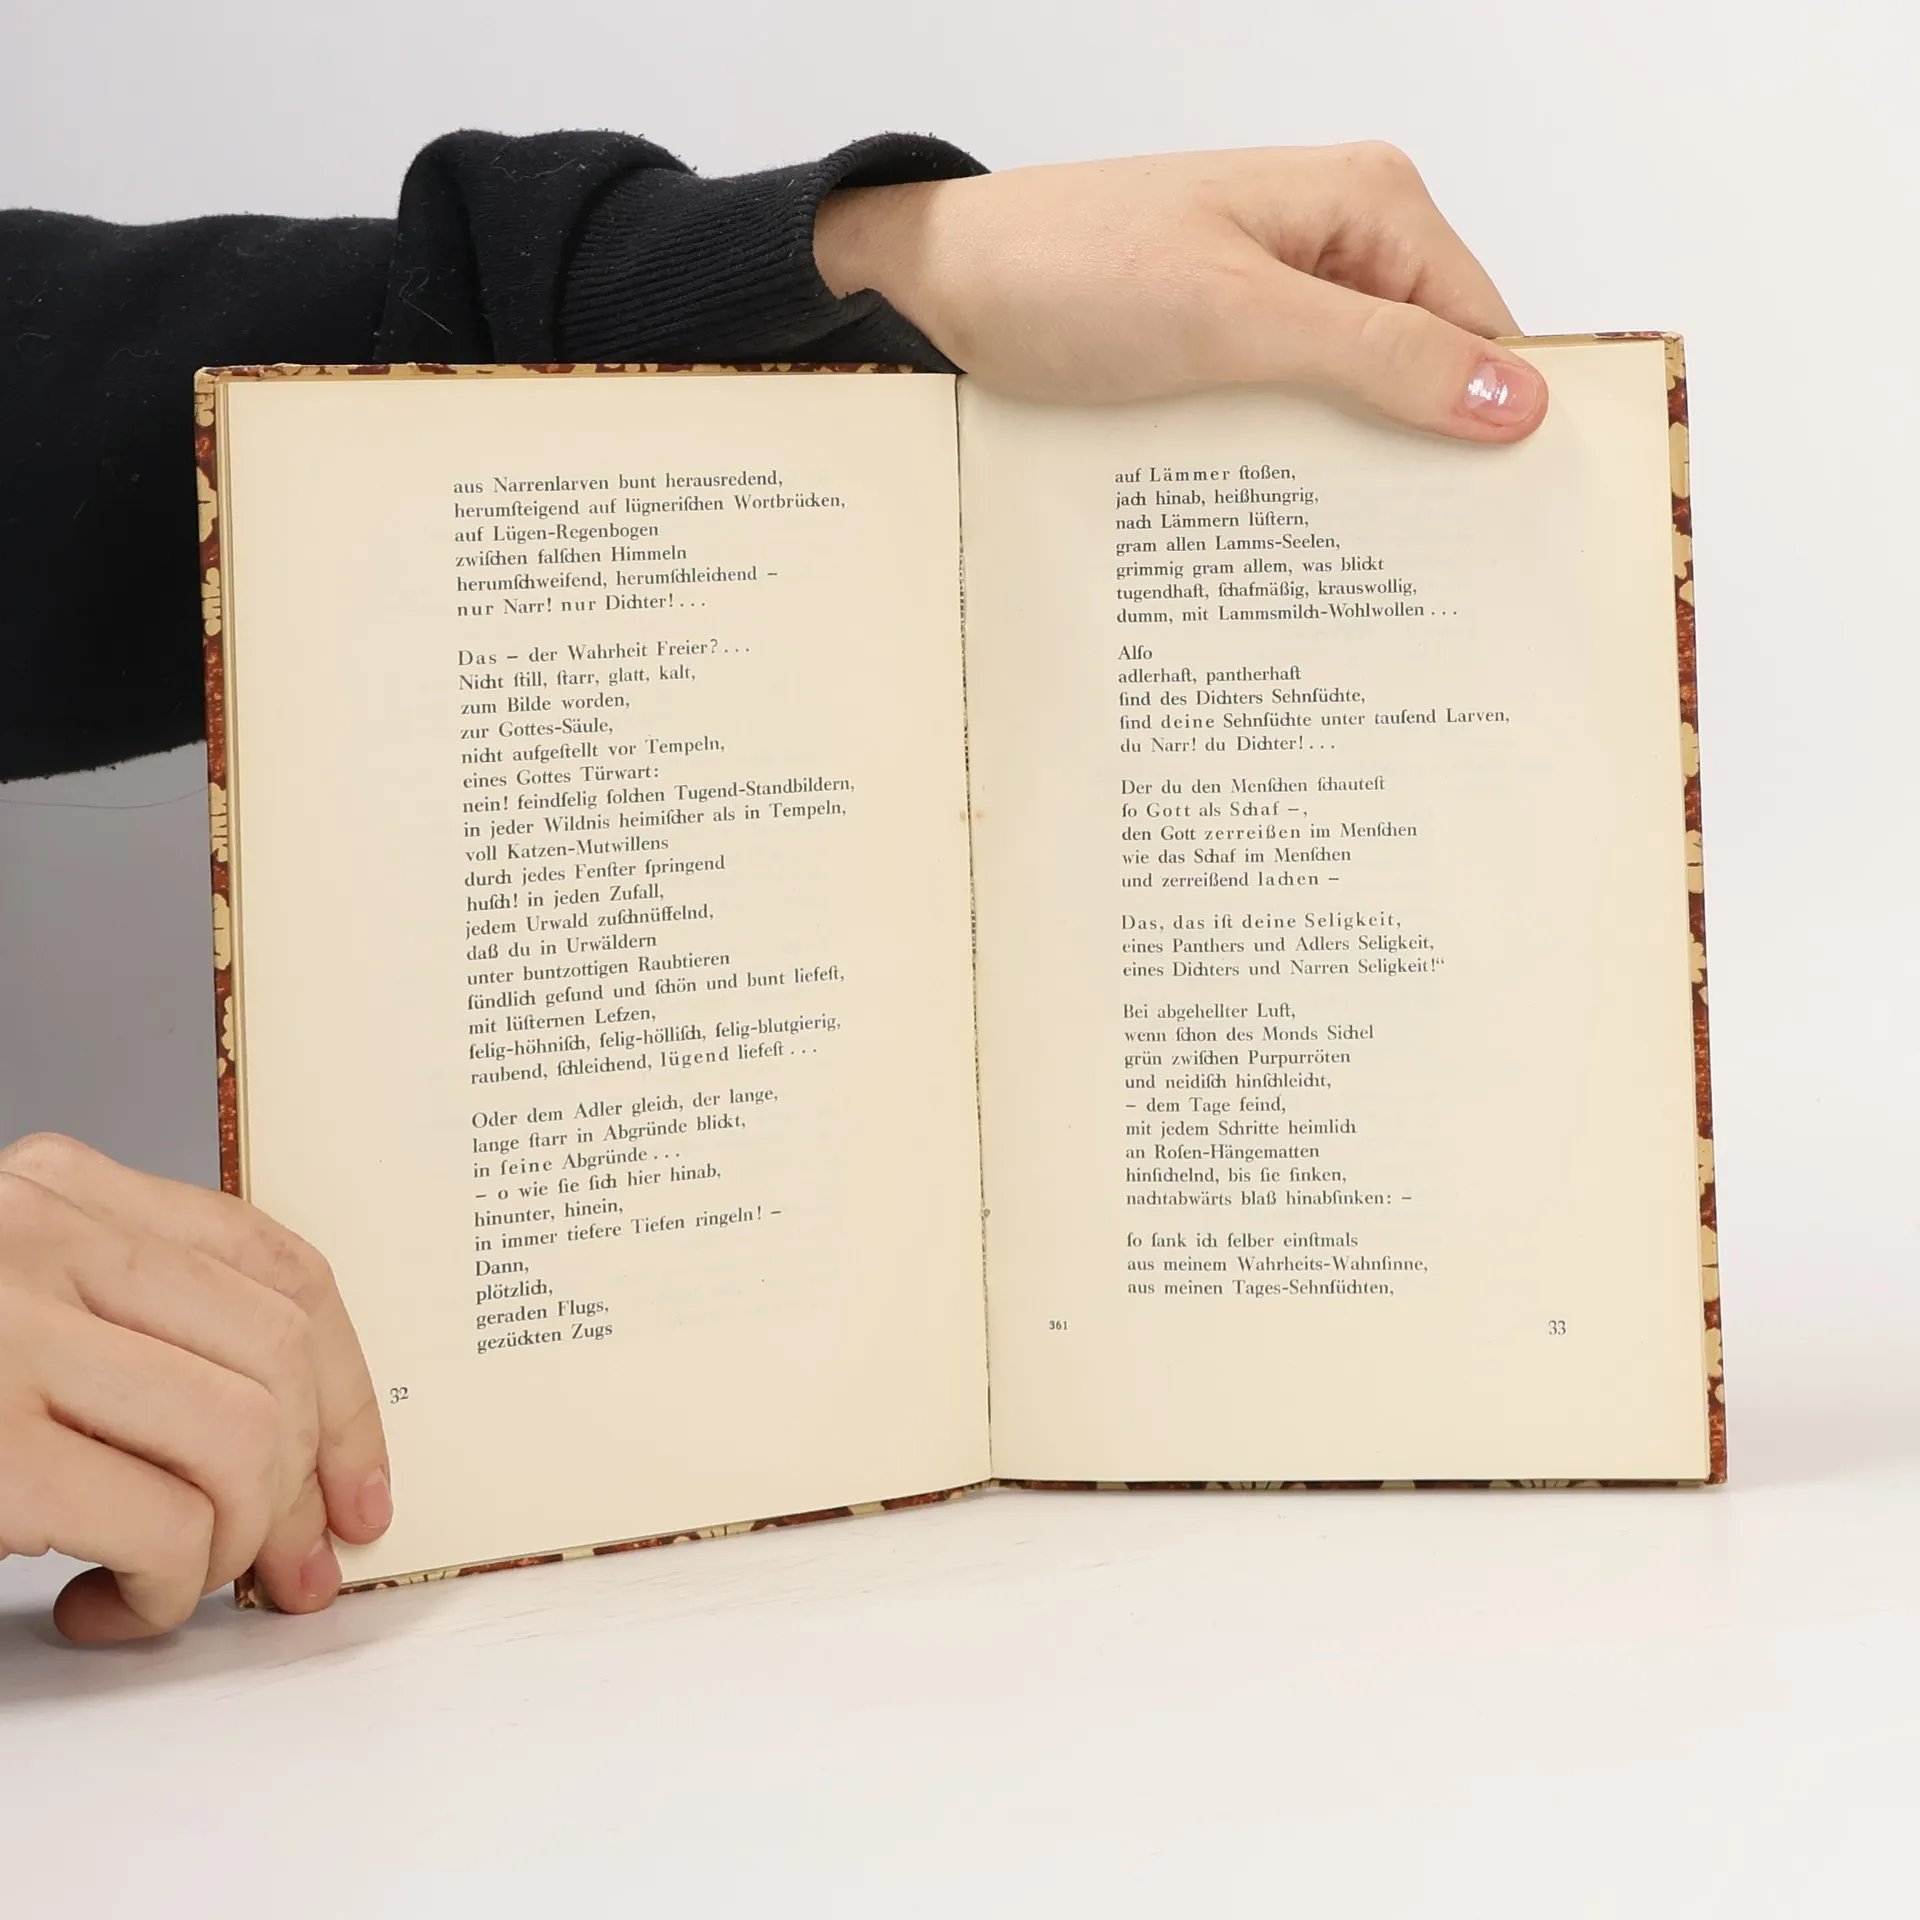 aus Narrenlarven bunt herausredend,
herumſteigend auf lügneriſchen Wortbrücken,
auf Lügen-Regenbogen
zwiſchen falſchen Himmeln
herumſchweifend, herumſchleichend –
nur Narr! nur Dichter!...
Das – der Wahrheit Freier?...
Nicht ſtill, ſtarr, glatt, kalt,
zum Bilde worden,
zur Gottes-Säule,
nicht aufgeſtellt vor Tempeln,
eines Gottes Türwart:
nein! feindſelig ſolchen Tugend-Standbildern,
in jeder Wildnis heimiſcher als in Tempeln,
voll Katzen-Mutwillens
durch jedes Fenſter ſpringend
huſch! in jeden Zufall,
jedem Urwald zuſchnüffelnd,
daß du in Urwäldern
unter buntzottigen Raubtieren
ſündlich geſund und ſchön und bunt liefeſt,
mit lüſternen Lefzen,
ſelig-höhniſch, ſelig-hölliſch, ſelig-blutgierig,
raubend, ſchleichend, lügend liefeſt...
Oder dem Adler gleich, der lange,
lange ſtarr in Abgründe blickt,
in ſeine Abgründe...
– o wie ſie ſich hier hinab,
hinunter, hinein,
in immer tiefere Tiefen ringeln! –
Dann,
plötzlich,
geraden Flugs,
gezückten Zugs
32
auf Lämmer ſtoßen,
jach hinab, heißhungrig,
nach Lämmern lüſtern,
gram allen Lamms-Seelen,
grimmig gram allem, was blickt
tugendhaft, ſchafmäßig, krauswollig,
dumm, mit Lammsmilch-Wohlwollen...
Alſo
adlerhaft, pantherhaft
ſind des Dichters Sehnſüchte,
ſind deine Sehnſüchte unter tauſend Larven,
du Narr! du Dichter!...
Der du den Menſchen ſchauteſt
ſo Gott als Schaf –,
den Gott zerreißen im Menſchen
wie das Schaf im Menſchen
und zerreißend lachen –
Das, das iſt deine Seligkeit,
eines Panthers und Adlers Seligkeit,
eines Dichters und Narren Seligkeit!“
Bei abgehellter Luft,
wenn ſchon des Monds Sichel
grün zwiſchen Purpurröten
und neidiſch hinſchleicht,
– dem Tage feind,
mit jedem Schritte heimlich
an Roſen-Hängematten
hinſichelnd, bis ſie ſinken,
nachtabwärts blaß hinabſinken: –
ſo ſank ich ſelber einſtmals
aus meinem Wahrheits-Wahnſinne,
aus meinen Tages-Sehnſüchten,
361
33